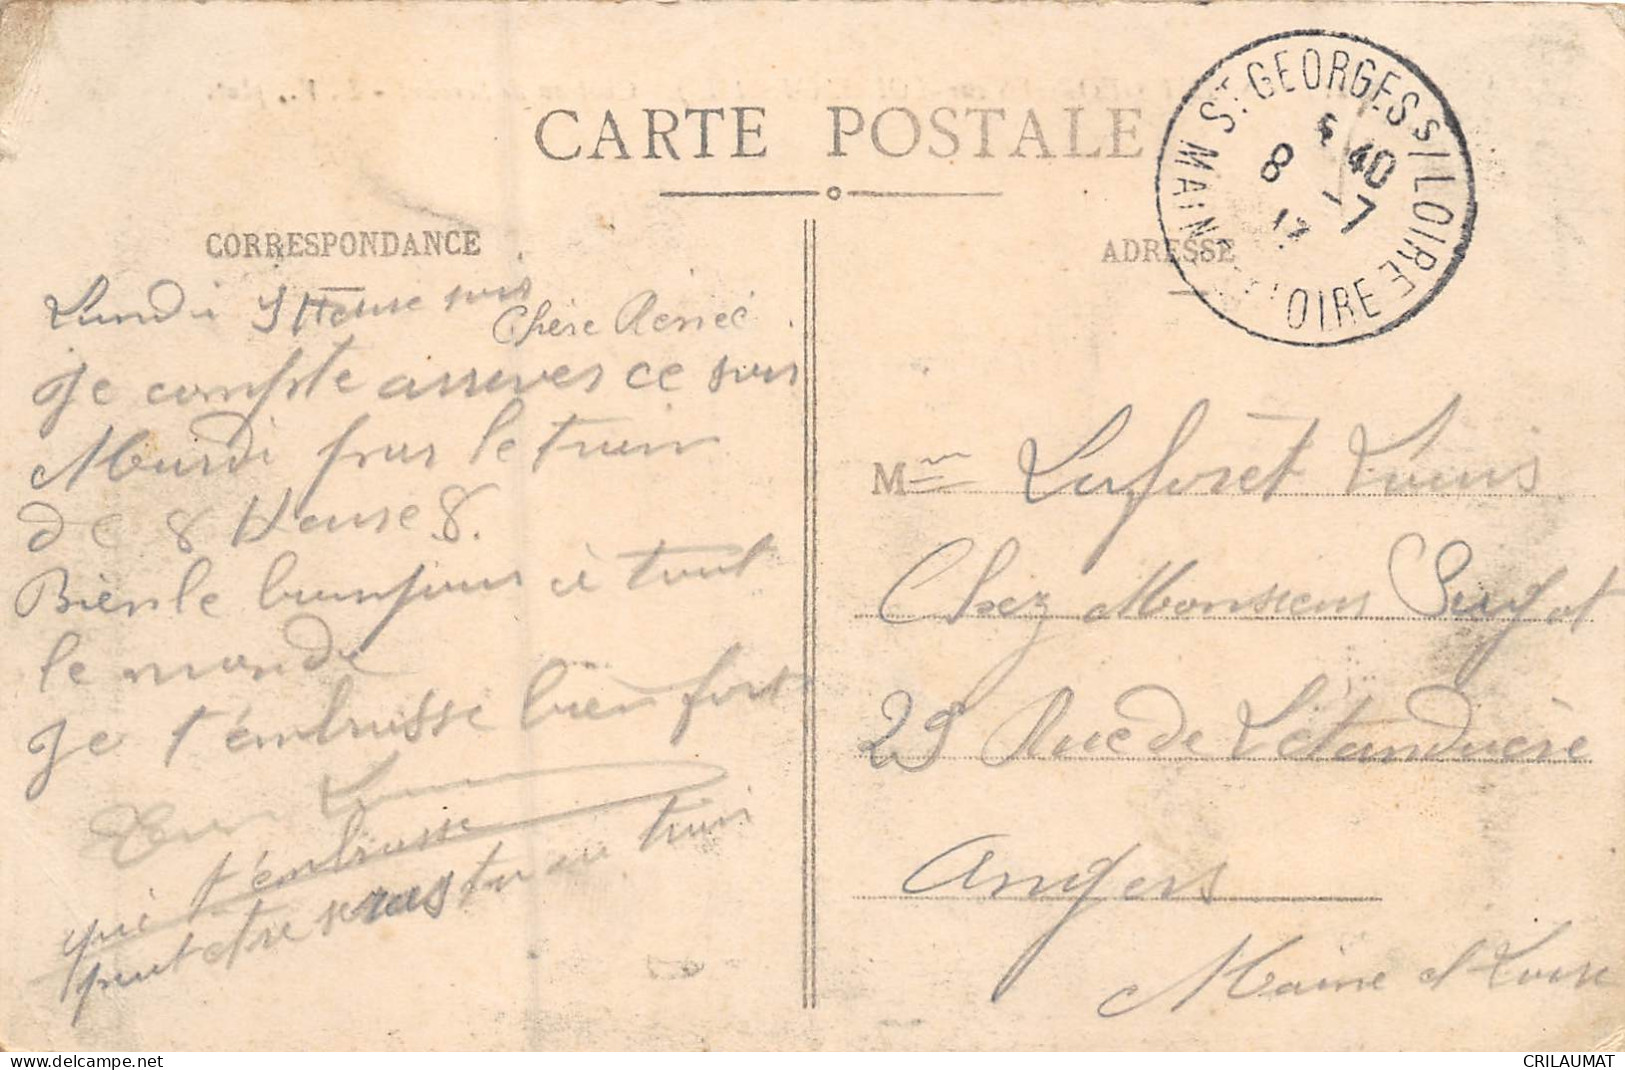 CARTE POSTALE
CORRESPONDANCE
ADRESSE
ST GEORGES S/LOIRE
MAINE ET LOIRE
5 40
8 -7
Lundi 3 Heure soir
Chère Renée
Je compte arriver ce soir
Mardi par le train
de 8 Heure 8.
Bien le bonjour à tout
le monde
Je t'embrasse bien fort
qui t'embrasse
peut etre seras tu au train
Mme Laforêt Louis
Chez Monsieur
29 Rue de Létanduère
Angers
Maine et Loire
delcampe.net
CRILAUMAT